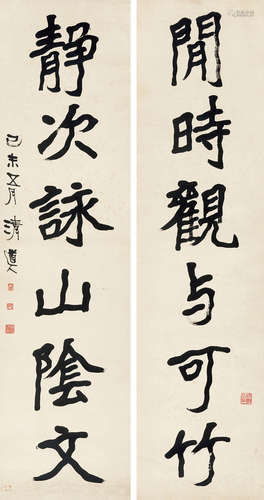 閒時觀与可竹
静次詠山陰文
己未五月清道人